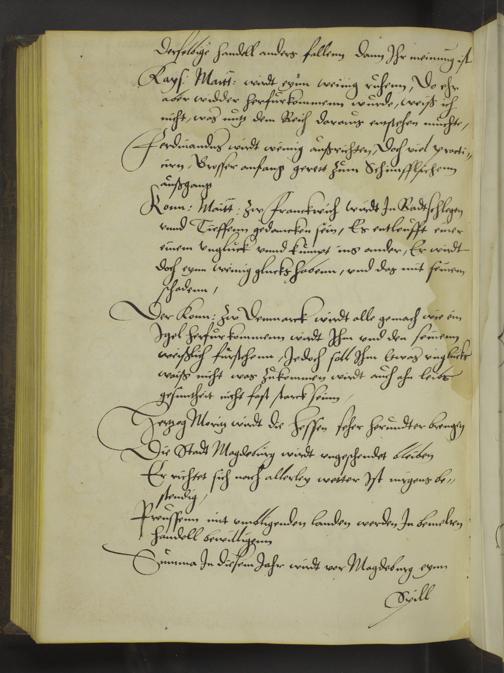 derselbige handell anders fallenn dann Ihr meinung ist
Kays: Maitt: wirdt eyn wenig ruhenn, Do ehr
aber widder herfurkommenn wurde, weiß ich
nicht, was nutz dem Reich daraus entstehen muchte,
Ferdinandus wirdt wenig außrichten, Doch viel
Grosser anfang gerett zum Schimpfflichenn
außgang
Konn: Maitt: zu Franckreich wirdt In Radtschlegen
unnd Tieffenn gedancken sein, Er entleufft einer
einem ungluck unnd kumpt ins ander, Er wirdt
doch eynn wenig glucks habenn, und das mit seinem
schadenn,
Der Konn: zu Dennmarck wirdt alle gemach wie ein
Igel herfurkommenn wirdt Ihm und den seinem
weißlich fürstehenn, Jedoch soll Ihm etwas unglucks
waiß nicht was zukommen wirdt auch ahn leibs
gesuntheit nicht fast starck seinn,
Hertzog Moritz wirdt die Hessen seher herundter brengen
Die Stadt Magdeburg wirdt ungeschendet bleiben
Er richtet sich nach allerley wetter Ist nirgens be-
stendig,
Preussenn mit umbligenden landen werden In bemelten
handell bewilligenn
Summa In diesem Jahr wirdt vor Magdeburg eynn
Spill